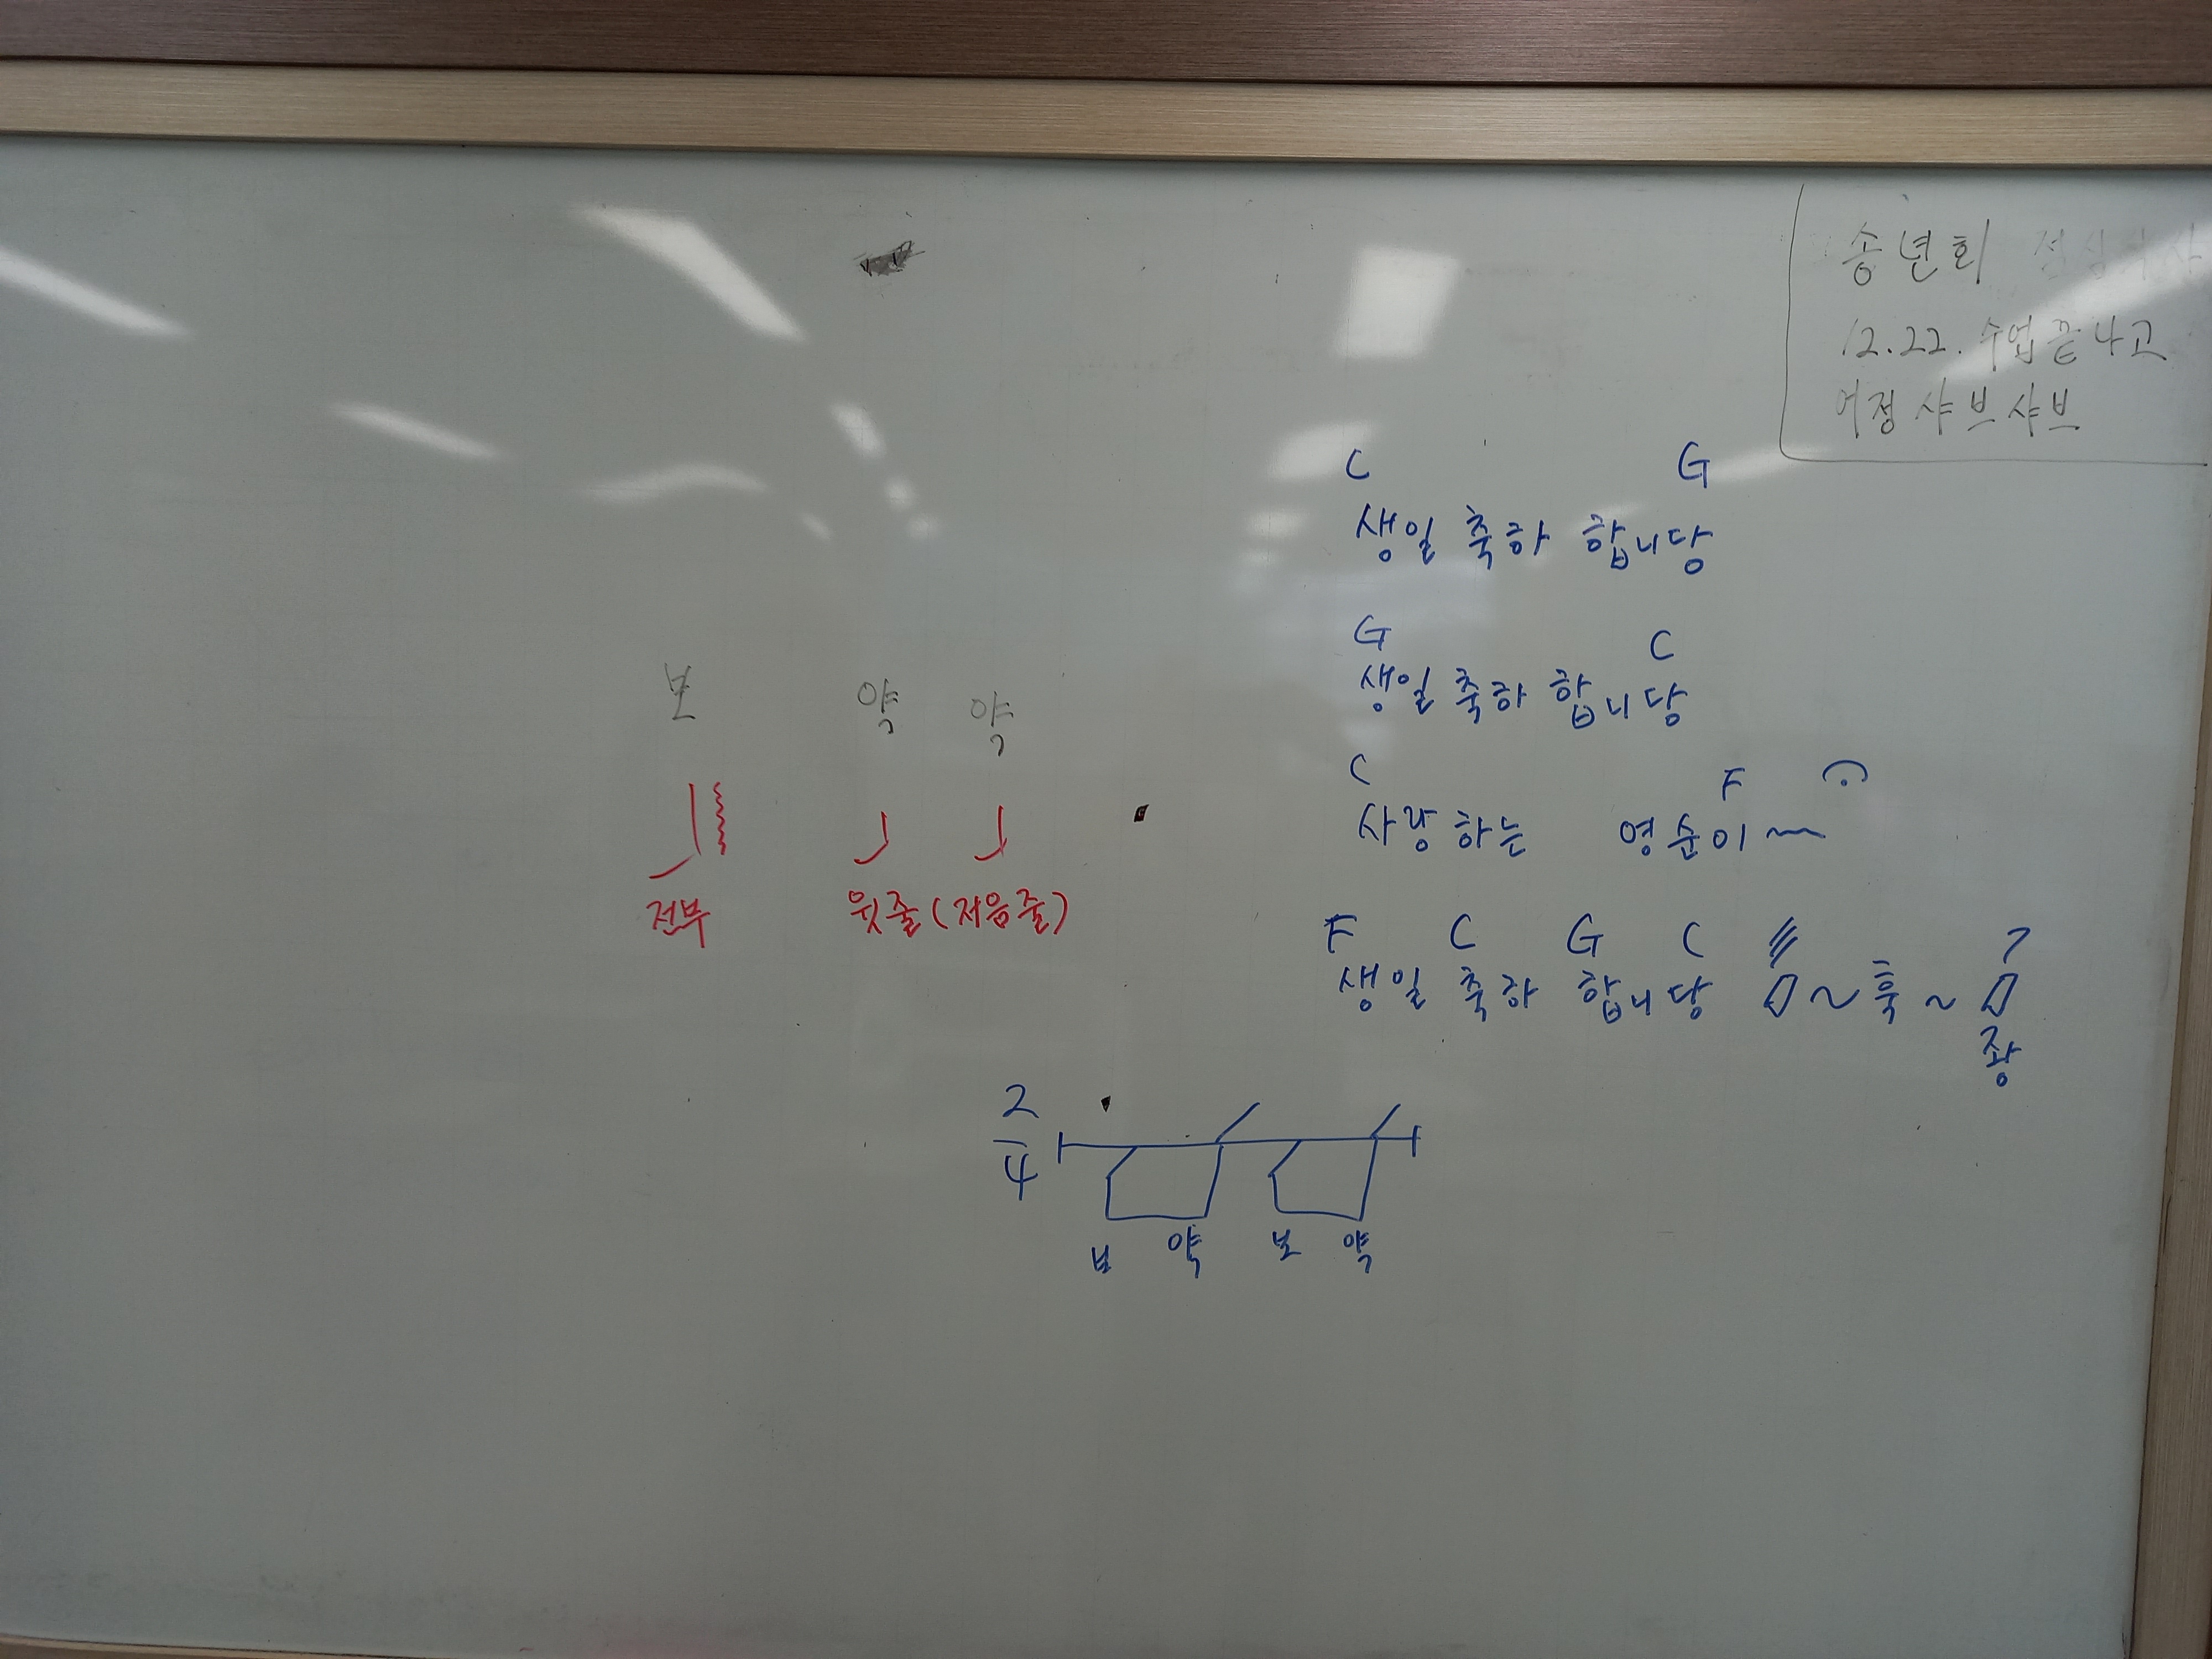 송년회 점심식사
12.22. 수업끝나고
어정 샤브샤브
C G
생일 축하 합니당
G C
생일 축하 합니당
C F
사랑하는 영순이~
F C G C
생일 축하 합니당 ~훅~
좡
보 약 약
전부 윗줄(저음줄)
2
4
보 약 보 약